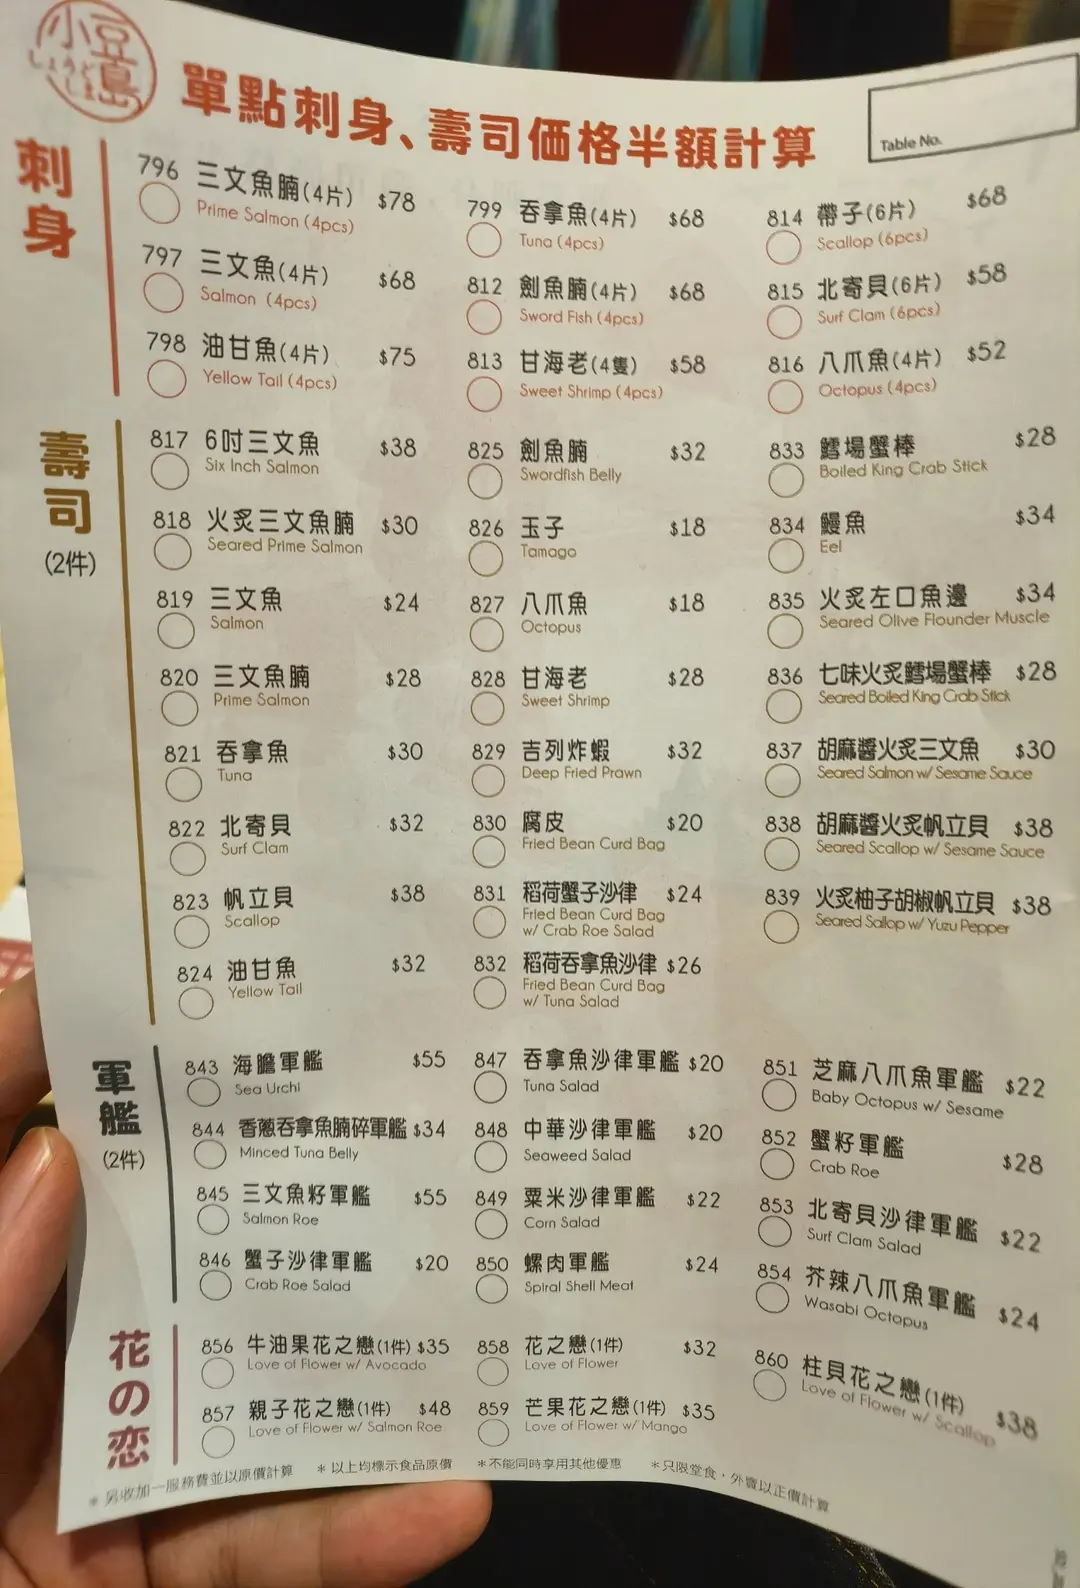 小豆島
しょうどしま
單點刺身、壽司価格半額計算
Table No.
刺身
796 三文魚腩(4片) $78
Prime Salmon (4pcs)
797 三文魚(4片) $68
Salmon (4pcs)
798 油甘魚(4片) $75
Yellow Tail (4pcs)
799 吞拿魚(4片) $68
Tuna (4pcs)
812 劍魚腩(4片) $68
Sword Fish (4pcs)
813 甘海老(4隻) $58
Sweet Shrimp (4pcs)
814 帶子(6片) $68
Scallop (6pcs)
815 北寄貝(6片) $58
Surf Clam (6pcs)
816 八爪魚(4片) $52
Octopus (4pcs)
壽司
(2件)
817 6吋三文魚 $38
Six Inch Salmon
818 火炙三文魚腩 $30
Seared Prime Salmon
819 三文魚 $24
Salmon
820 三文魚腩 $28
Prime Salmon
821 吞拿魚 $30
Tuna
822 北寄貝 $32
Surf Clam
823 帆立貝 $38
Scallop
824 油甘魚 $32
Yellow Tail
825 劍魚腩 $32
Swordfish Belly
826 玉子 $18
Tamago
827 八爪魚 $18
Octopus
828 甘海老 $28
Sweet Shrimp
829 吉列炸蝦 $32
Deep Fried Prawn
830 腐皮 $20
Fried Bean Curd Bag
831 稻荷蟹子沙律 $24
Fried Bean Curd Bag
w/ Crab Roe Salad
832 稻荷吞拿魚沙律 $26
Fried Bean Curd Bag
w/ Tuna Salad
833 鱈場蟹棒 $28
Boiled King Crab Stick
834 鰻魚 $34
Eel
835 火炙左口魚邊 $34
Seared Olive Flounder Muscle
836 七味火炙鱈場蟹棒 $28
Seared Boiled King Crab Stick
837 胡麻醬火炙三文魚 $30
Seared Salmon w/ Sesame Sauce
838 胡麻醬火炙帆立貝 $38
Seared Scallop w/ Sesame Sauce
839 火炙柚子胡椒帆立貝 $38
Seared Sallop w/ Yuzu Pepper
軍艦
(2件)
843 海膽軍艦 $55
Sea Urchi
844 香蔥吞拿魚腩碎軍艦 $34
Minced Tuna Belly
845 三文魚籽軍艦 $55
Salmon Roe
846 蟹子沙律軍艦 $20
Crab Roe Salad
847 吞拿魚沙律軍艦 $20
Tuna Salad
848 中華沙律軍艦 $20
Seaweed Salad
849 粟米沙律軍艦 $22
Corn Salad
850 螺肉軍艦 $24
Spiral Shell Meat
851 芝麻八爪魚軍艦 $22
Baby Octopus w/ Sesame
852 蟹籽軍艦 $28
Crab Roe
853 北寄貝沙律軍艦 $22
Surf Clam Salad
854 芥辣八爪魚軍艦 $24
Wasabi Octopus
花の恋
856 牛油果花之戀(1件) $35
Love of Flower w/ Avocado
857 親子花之戀(1件) $48
Love of Flower w/ Salmon Roe
858 花之戀(1件) $32
Love of Flower
859 芒果花之戀(1件) $35
Love of Flower w/ Mango
860 柱貝花之戀(1件) $38
Love of Flower w/ Scallop
＊另收加一服務費並以原價計算 ＊以上均標示食品原價 ＊不能同時享用其他優惠 ＊只限堂食，外賣以正價計算